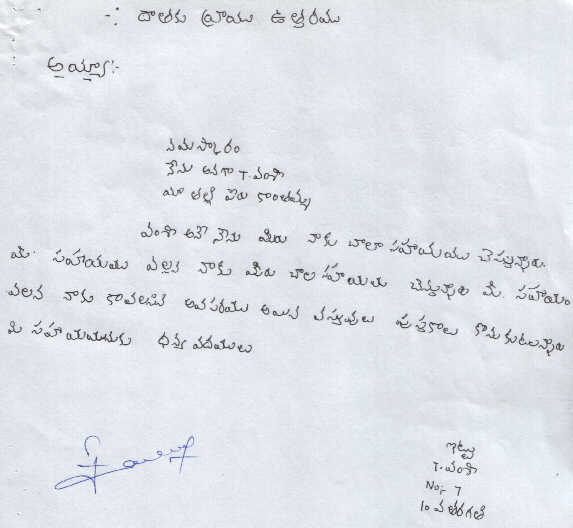 -: దాతకు వ్రాయు ఉత్తరము
అయ్యా:-
నమస్కారం
నేను అనగా T.వంశి
మా తల్లి పేరు కాంతమ్మ
వంశి అనే నేను మీరు నాకు చాలా సహాయము చేస్తున్నారు.
మీ సహాయము వల్లన నాకు మీరు చాల సహాయము చేస్తున్నారు మీ. సహాయం
వలన నాకు కావలసిన అవసరము అయిన వస్తువులు పుస్తకాలు కొనుకుటున్నాం
మి సహాయమునకు ధన్య వదములు
ఇట్లు
T.వంశి
No:- 7
10 వ తరగతి